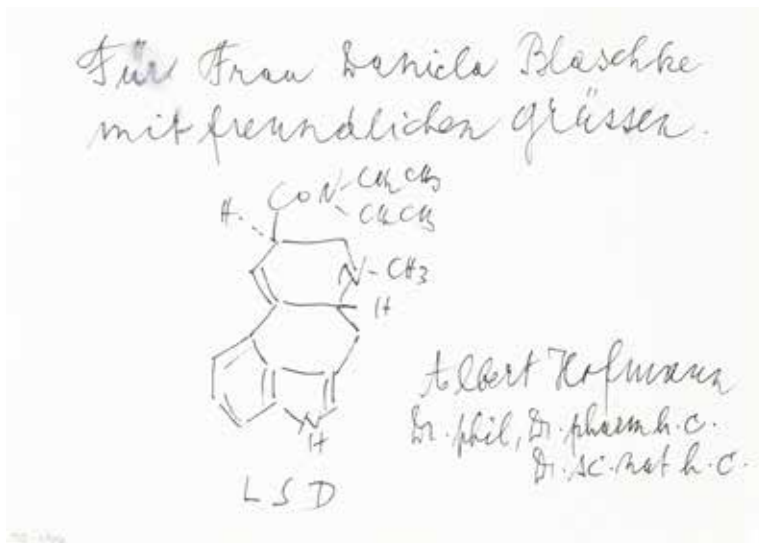 Für Frau Daniela Blaschke
mit freundlichen Grüssen.
CON-CH2CH3
CH2CH3
H
N-CH3
H
N
H
Albert Hofmann
Dr. phil, Dr. pharm h. c.
Dr. sc. nat h. c.
LSD